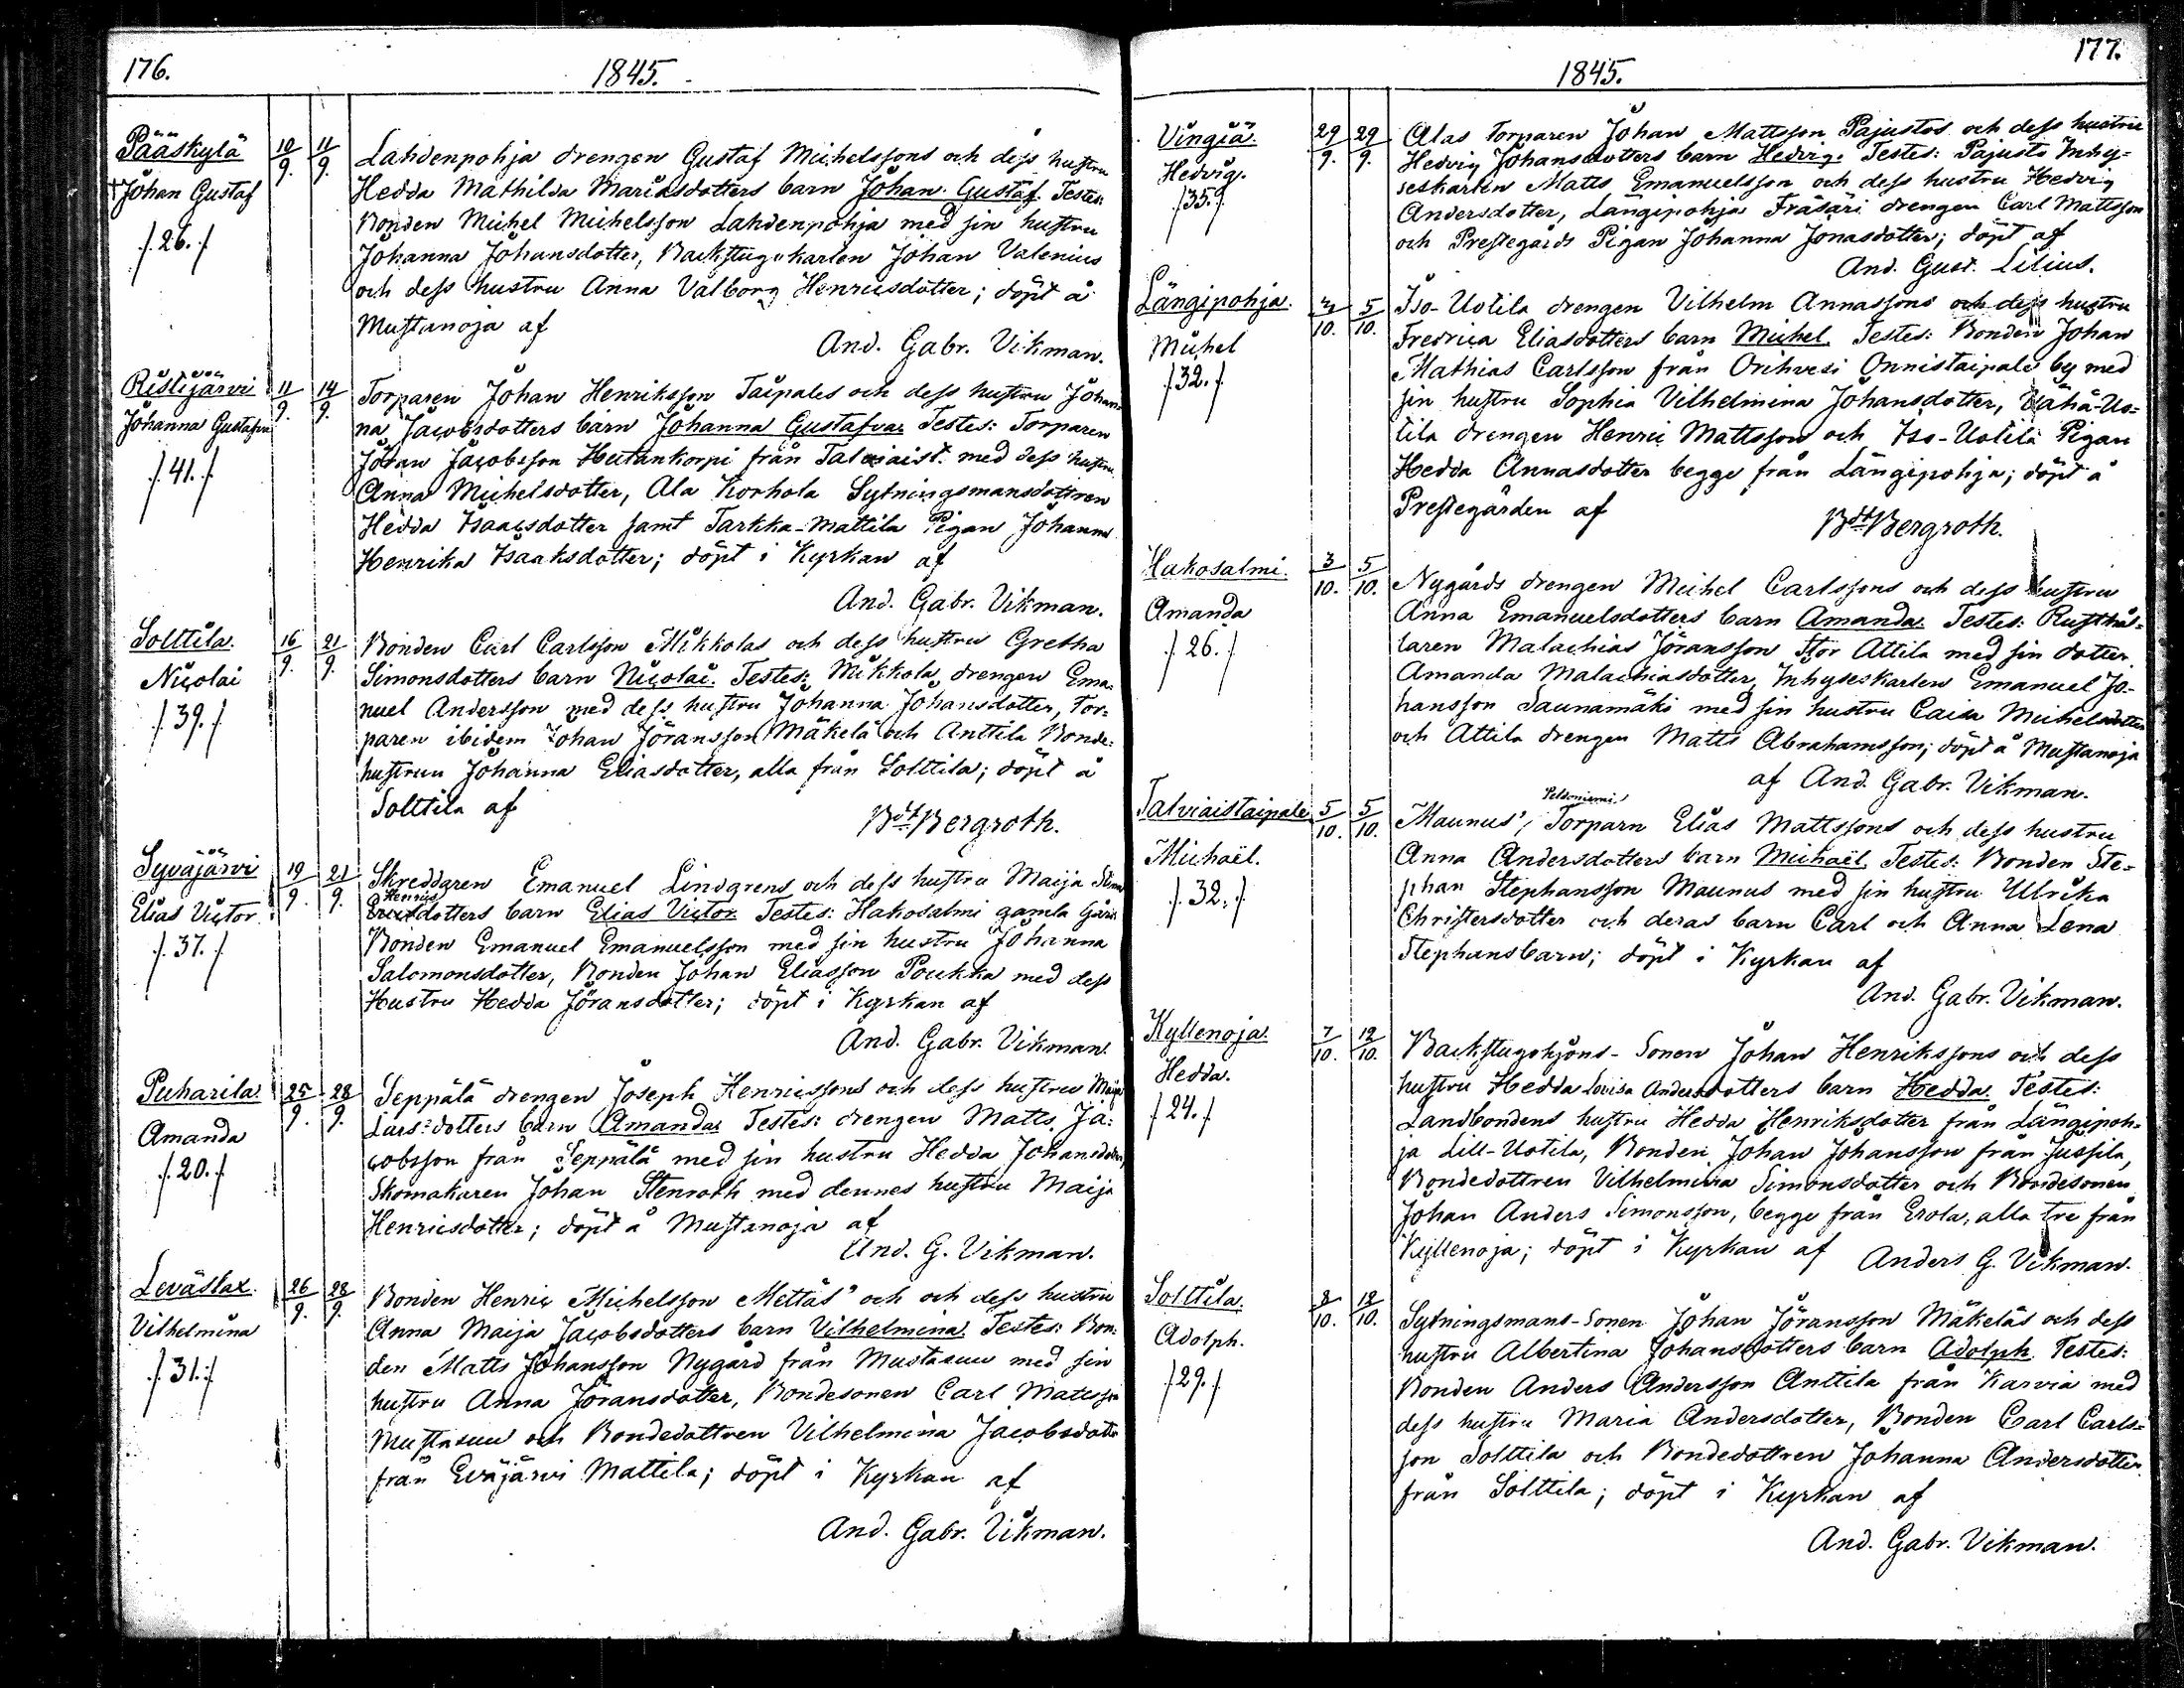 176.
1845.
Pääskylä
†Johan Gustaf
/. 26. /.
10/9. 11/9.
Lahdenpohja drengen Gustaf Michelssons och dess hustru
Hedda Mathilda Mariasdotters barn Johan Gustaf. Testes:
Bonden Michel Michelsson Lahdenpohja med sin hustru
Johanna Johansdotter, Backstugukarlen Johan Valenius
och dess hustru Anna Valborg Henricsdotter; döpt å
Mustanoja af
And. Gabr. Vikman.
Ristijärvi
Johanna Gustafva
/. 41. /.
11/9. 14/9.
Torparen Johan Henriksson Taipales och dess hustru Johan-
na Jacobsdotters barn Johanna Gustafva. Testes: Torparen
Johan Jacobsson Hutankorpi från Talviaist. med dess hustru
Anna Michelsdotter, Ala Korhola Sytningsmansdottren
Hedda Isaacsdotter samt Tarkka-Mattila Pigan Johanna
Henrika Isaaksdotter; döpt i Kyrkan af
And. Gabr. Vikman.
Solttila.
Nicolai
/. 39. /.
16/9. 21/9.
Bonden Carl Carlsson Mikkolas och dess hustru Gretha
Simonsdotters barn Nicolai. Testes: Mikkola drengen Ema-
nuel Andersson med dess hustru Johanna Johansdotter, Tor-
paren ibidem Johan Jöransson Mäkelä och Anttila Bonde-
hustrun Johanna Eliasdotter, alla från Solttila; döpt å
Solttila af
Bdt Bergroth.
Syväjärvi
Elias Victor.
/. 37. /.
19/9. 21/9.
Skreddaren Emanuel Lindgrens och dess hustru Maija Stina
Henrics
dotters barn Elias Victor. Testes: Hakosalmi gamla Gårds
Bonden Emanuel Emanuelsson med sin hustru Johanna
Salomonsdotter, Bonden Johan Eliasson Poukka med dess
Hustru Hedda Jöransdotter; döpt i Kyrkan af
And. Gabr. Vikman.
Puharila.
Amanda
/. 20. /.
25/9. 28/9.
Seppälä drengen Joseph Henricssons och dess hustru Maija
Lars-dotters barn Amanda. Testes: drengen Matts Ja-
cobsson från Seppälä med sin hustru Hedda Johansdotter,
Skomakaren Johan Stenroth med dennes hustru Maija
Henricsdotter; döpt å Mustanoja af
And. G. Vikman.
Leväslax.
Vilhelmina
/. 31. /.
26/9. 28/9.
Bonden Henric Michelsson Mettäs' och och dess hustru
Anna Maija Jacobsdotters barn Vilhelmina. Testes: Bon-
den Matts Johansson Nygård från Mustasuu med sin
hustru Anna Jöransdotter, Bondesonen Carl Mattsson
Mustasuu och Bondedottren Vilhelmina Jacobsdotter
från Eväjärvi Mattila; döpt i Kyrkan af
And. Gabr. Vikman.
177.
1845.
Vingiä.
Hedvig.
/35./
29/9. 29/9.
Alas Torparen Johan Mattsson Pajustos och dess hustru
Hedvig Johansdotters barn Hedvig. Testes: Pajusto Inhy-
seskarlen Matts Emanuelsson och dess hustru Hedvig
Andersdotter, Längipohja Träsäri drengen Carl Mattsson
och Prestegårds Pigan Johanna Jonasdotter; döpt af
And. Gust. Lilius.
Längipohja.
Michel
/32. /.
5/10.
Iso-Uotila drengen Vilhelm Annassons och dess hustru
Fredrica Eliasdotters barn Michel. Testes: Bonden Johan
Mathias Carlsson från Orihvesi Onnistaipale by med
sin hustru Sophia Vilhelmina Johansdotter, Vähä-Uo-
tila drengen Henric Mattsson och Iso-Uotila Pigan
Hedda Annasdotter begge från Längipohja; döpt å
Prestegården af
Bdt Bergroth.
Hakosalmi.
Amanda
/. 26. /.
3/10. 5/10.
Nygårds drengen Michel Carlssons och dess hustru
Anna Emanuelsdotters barn Amanda. Testes: Rusthål-
laren Malachias Jöransson Stor Attila med sin dotter
Amanda Malachiasdotter, Inhyseskarlen Emanuel Jo-
hansson Saunamäki med sin hustru Caisa Michelsdotter
och Attila drengen Matts Abrahamsson; döpt å Mustanoja
af And. Gabr. Vikman.
Talviaistaipale
Michaël.
/. 32. /.
5/10. 5/10.
Peltoniemi
Maunus', Torparn Elias Mattssons och dess hustru
Anna Andersdotters barn Michaël. Testes: Bonden Ste-
phan Stephansson Maunus med sin hustru Ulrika
Christersdotter och deras barn Carl och Anna Lena
Stephansbarn; döpt i Kyrkan af
And. Gabr. Vikman.
Kyllenoja.
Hedda.
/24. /.
7/10. 12/10.
Backstugohjons-Sonen Johan Henrikssons och dess
hustru Hedda Lovisa Andersdotters barn Hedda. Testes:
Landbondens hustru Hedda Henriksdotter från Längipoh-
ja Lill-Uotila, Bonden Johan Johansson från Jussila,
Bondedottren Vilhelmina Simonsdotter och Bondesonen
Johan Anders Simonsson, begge från Erola, alla tre från
Kyllenoja; döpt i Kyrkan af
Anders G. Vikman.
Solttila.
Adolph.
/29. /.
8/10. 12/10.
Sytningsmans-Sonen Johan Jöransson Mäkeläs och dess
hustru Albertina Johansdotters barn Adolph. Testes:
Bonden Anders Andersson Anttila från Karvia med
dess hustru Maria Andersdotter, Bonden Carl Carls-
son Solttila och Bondedottren Johanna Andersdotter
från Solttila; döpt i Kyrkan af
And. Gabr. Vikman.